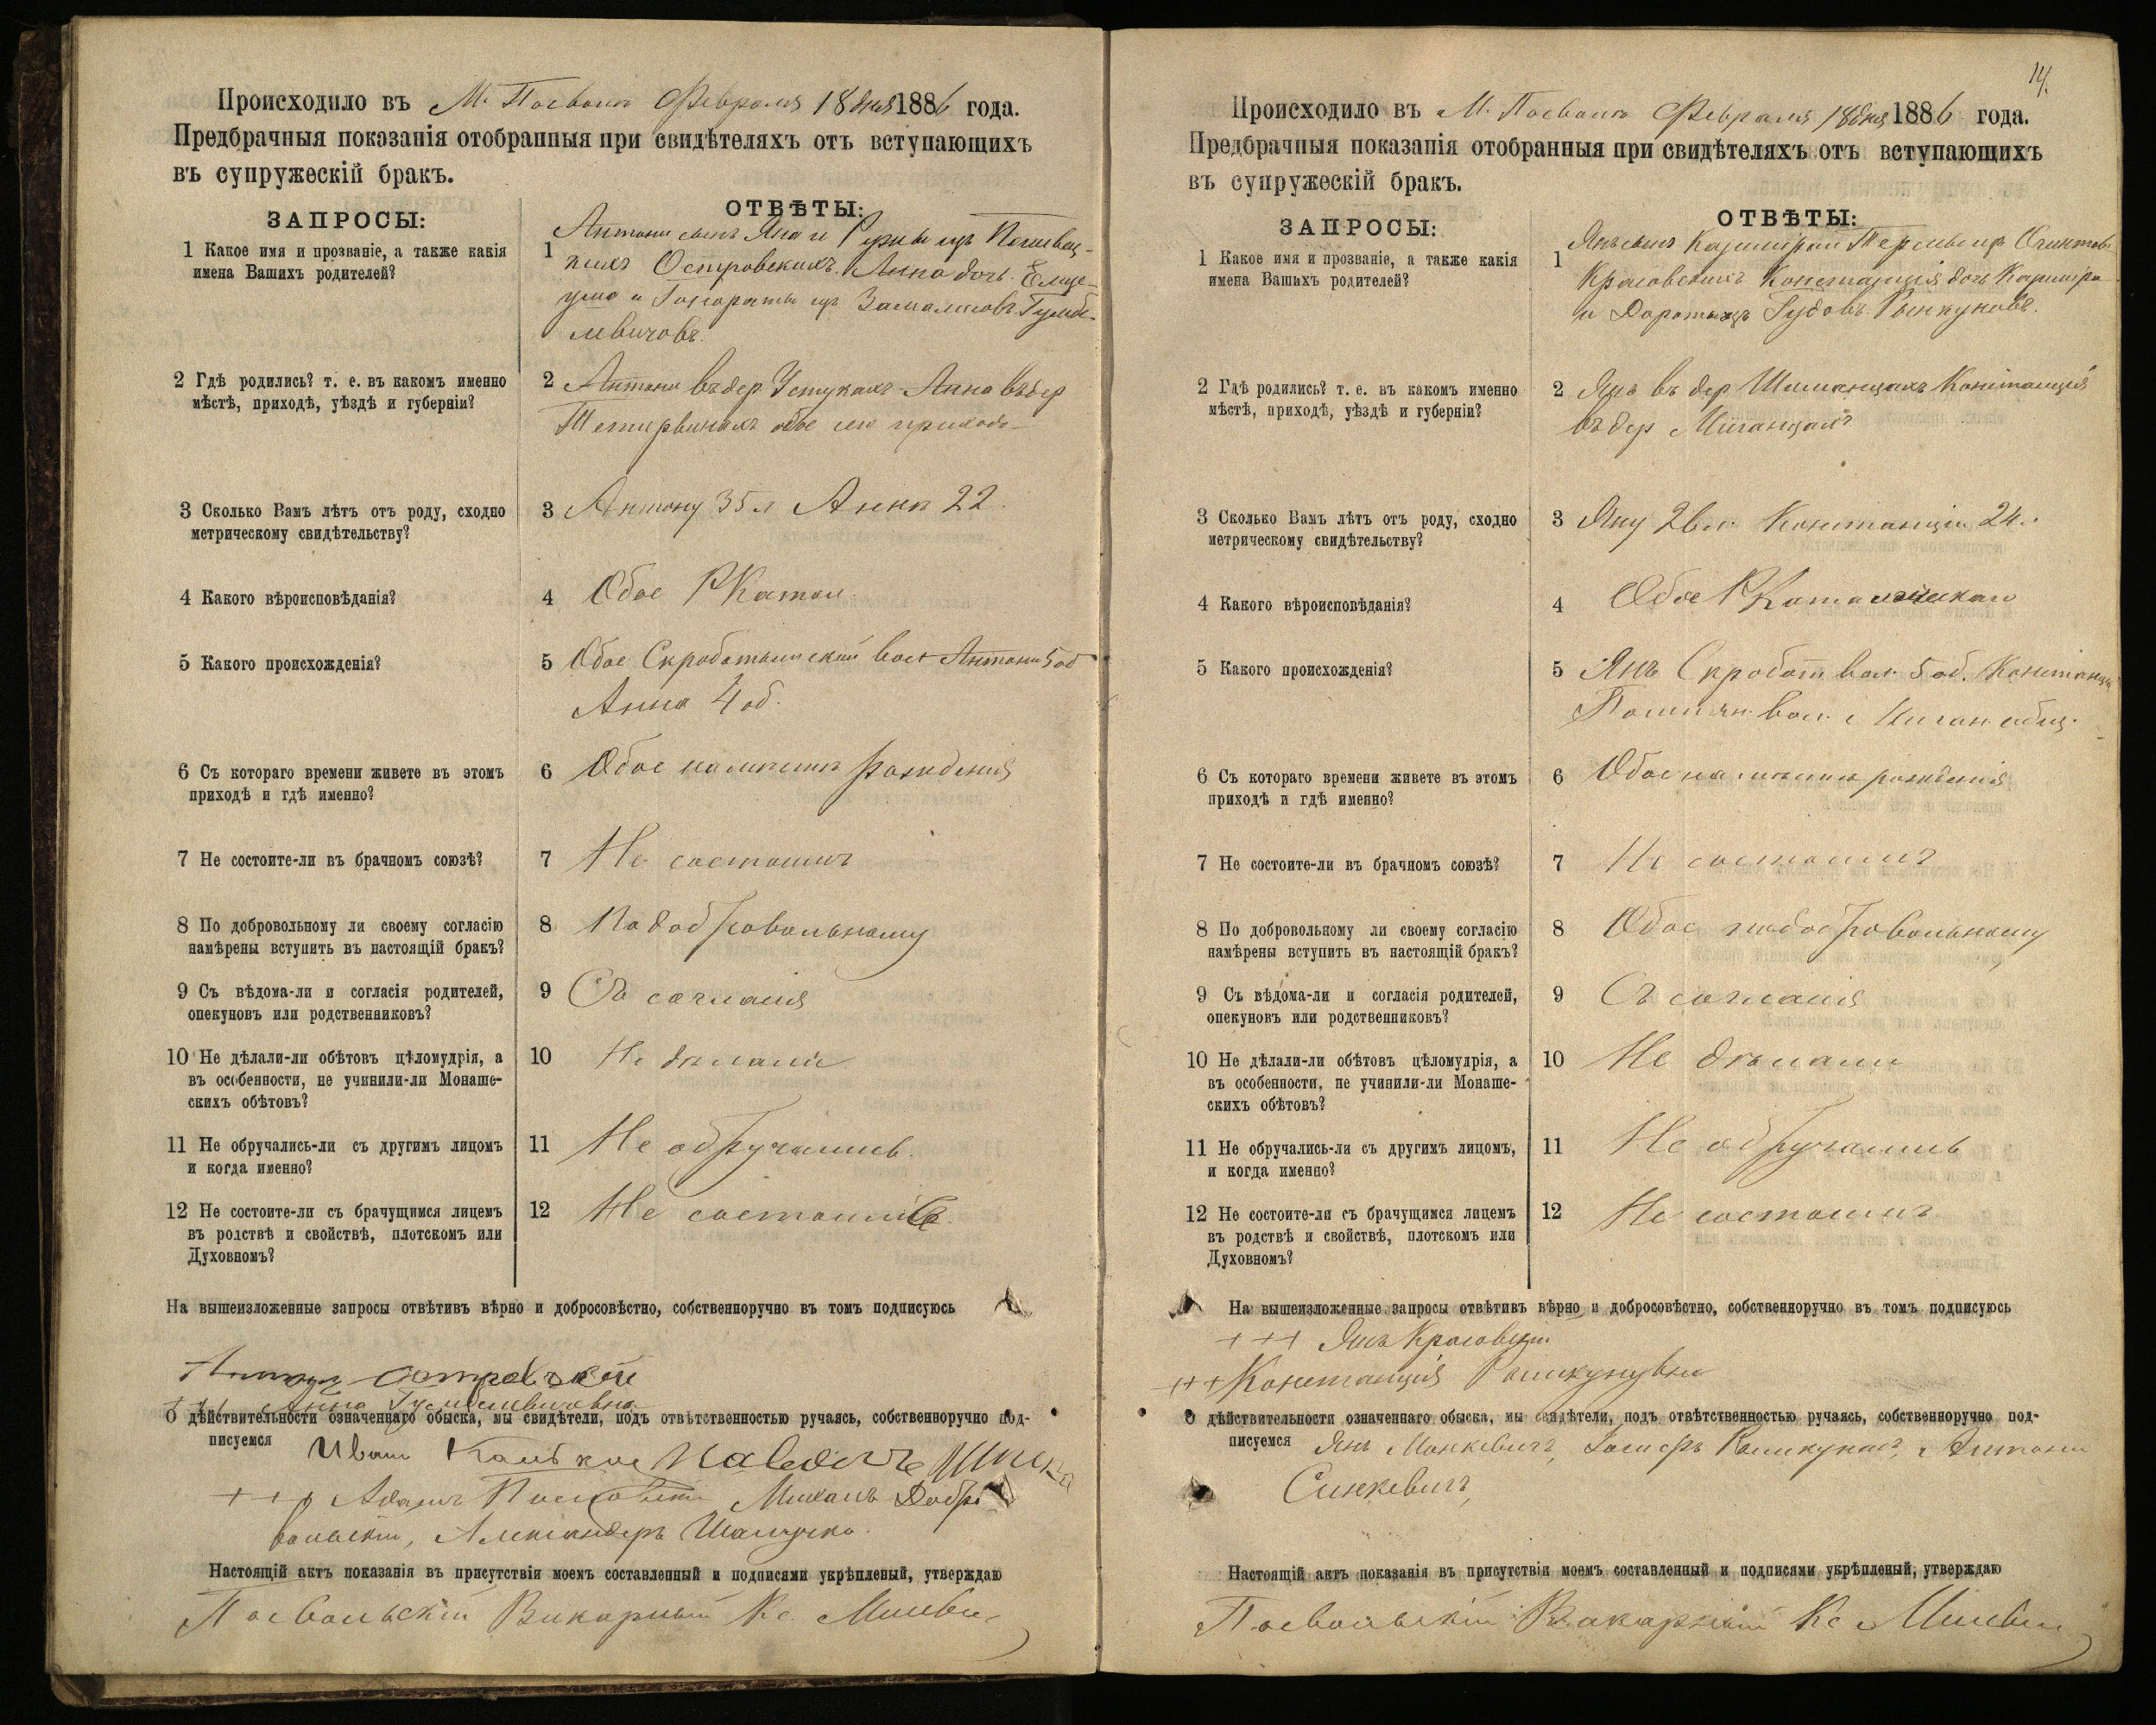 Происходило въ М. Посволѣ Февраля 18 дня 1886 года.
Предбрачныя показанія отобранныя при свидѣтеляхъ отъ вступающихъ
въ супружескій бракъ.
ЗАПРОСЫ:
ОТВѢТЫ:
1 Какое имя и прозваніе, а также какія
имена Вашихъ родителей?
1 Антони сынъ Яна и
Островскихъ. Анна дочь
и Гонораты изъ
2 Гдѣ родились? т. е. въ какомъ именно
мѣстѣ, приходѣ, уѣздѣ и губерніи?
2 Антони въ дер Устукахъ Анна въ дер
обое сего прихода
3 Сколько Вамъ лѣтъ отъ роду, сходно
метрическому свидѣтельству?
3 Антону 35 л Аннѣ 22.
4 Какого вѣроисповѣданія?
4 Обое РКатол.
5 Какого происхожденія?
5 Обое Скробатынской вол Антони 5 об
Анна 4 об.
6 Съ котораго времени живете въ этомъ
приходѣ и гдѣ именно?
6 Обое на мѣстѣ рожденія
7 Не состоите-ли въ брачномъ союзѣ?
7 Не состоимъ
8 По добровольному ли своему согласію
намѣрены вступить въ настоящій бракъ?
8 По добровольному
9 Съ вѣдома-ли и согласія родителей,
опекуновъ или родственниковъ?
9 Съ согласія
10 Не дѣлали-ли обѣтовъ цѣломудрія, а
въ особенности, не учинили-ли Монаше-
скихъ обѣтовъ?
10 Не дѣлали
11 Не обручались-ли съ другимъ лицомъ
и когда именно?
11 Не обручались.
12 Не состоите-ли съ брачущимся лицемъ
въ родствѣ и свойствѣ, плотскомъ или
Духовномъ?
12 Не состоимъ
На вышеизложенные запросы отвѣтивъ вѣрно и добросовѣстно, собственноручно въ томъ подписуюсь
+++ Анна
О дѣйствительности означеннаго обыска, мы свидѣтели, подъ отвѣтственностью ручаясь, собственноручно под-
писуемся Иванъ
+++ Адамъ Михалъ Добро
вольскій, Александеръ
Настоящій актъ показанія въ присутствіи моемъ составленный и подписями укрѣпленый, утверждаю
Посвольскій Викарный Кс.
14.
Происходило въ М. Посволѣ Февраля 18 дня 1886 года.
Предбрачныя показанія отобранныя при свидѣтеляхъ отъ вступающихъ
въ супружескій бракъ.
ЗАПРОСЫ:
ОТВѢТЫ:
1 Какое имя и прозваніе, а также какія
имена Вашихъ родителей?
1 Янъ сынъ
Красовскихъ Констанція дочь Казимира
и Дороты изъ
2 Гдѣ родились? т. е. въ какомъ именно
мѣстѣ, приходѣ, уѣздѣ и губерніи?
2 Янъ въ дер Констанція
въ дер
3 Сколько Вамъ лѣтъ отъ роду, сходно
метрическому свидѣтельству?
3 Яну 26 л. Констанціи 24.
4 Какого вѣроисповѣданія?
4 Обое РКатолическаго
5 Какого происхожденія?
5 Янъ Скробот вол. 5 об. Констанція
вол. общ.
6 Съ котораго времени живете въ этомъ
приходѣ и гдѣ именно?
6 Обое на мѣстѣ рожденія
7 Не состоите-ли въ брачномъ союзѣ?
7 Не состоимъ
8 По добровольному ли своему согласію
намѣрены вступить въ настоящій бракъ?
8 Обое по добровольному
9 Съ вѣдома-ли и согласія родителей,
опекуновъ или родственниковъ?
9 Съ согласія
10 Не дѣлали-ли обѣтовъ цѣломудрія, а
въ особенности, не учинили-ли Монаше-
скихъ обѣтовъ?
10 Не дѣлали
11 Не обручались-ли съ другимъ лицомъ,
и когда именно?
11 Не обручались
12 Не состоите-ли съ брачущимся лицемъ
въ родствѣ и свойствѣ, плотскомъ или
Духовномъ?
12 Не состоимъ
На вышеизложенные запросы отвѣтивъ вѣрно и добросовѣстно, собственноручно въ томъ подписуюсь
+++ Янъ Красовскій
+++ Констанція
О дѣйствительности означеннаго обыска, мы свидѣтели, подъ отвѣтственностью ручаясь, собственноручно под-
писуемся Янъ Антони
Синкевичъ,
Настоящій актъ показанія въ присутствіи моемъ составленный и подписями укрѣпленый, утверждаю
Посвольскій Викарный Кс